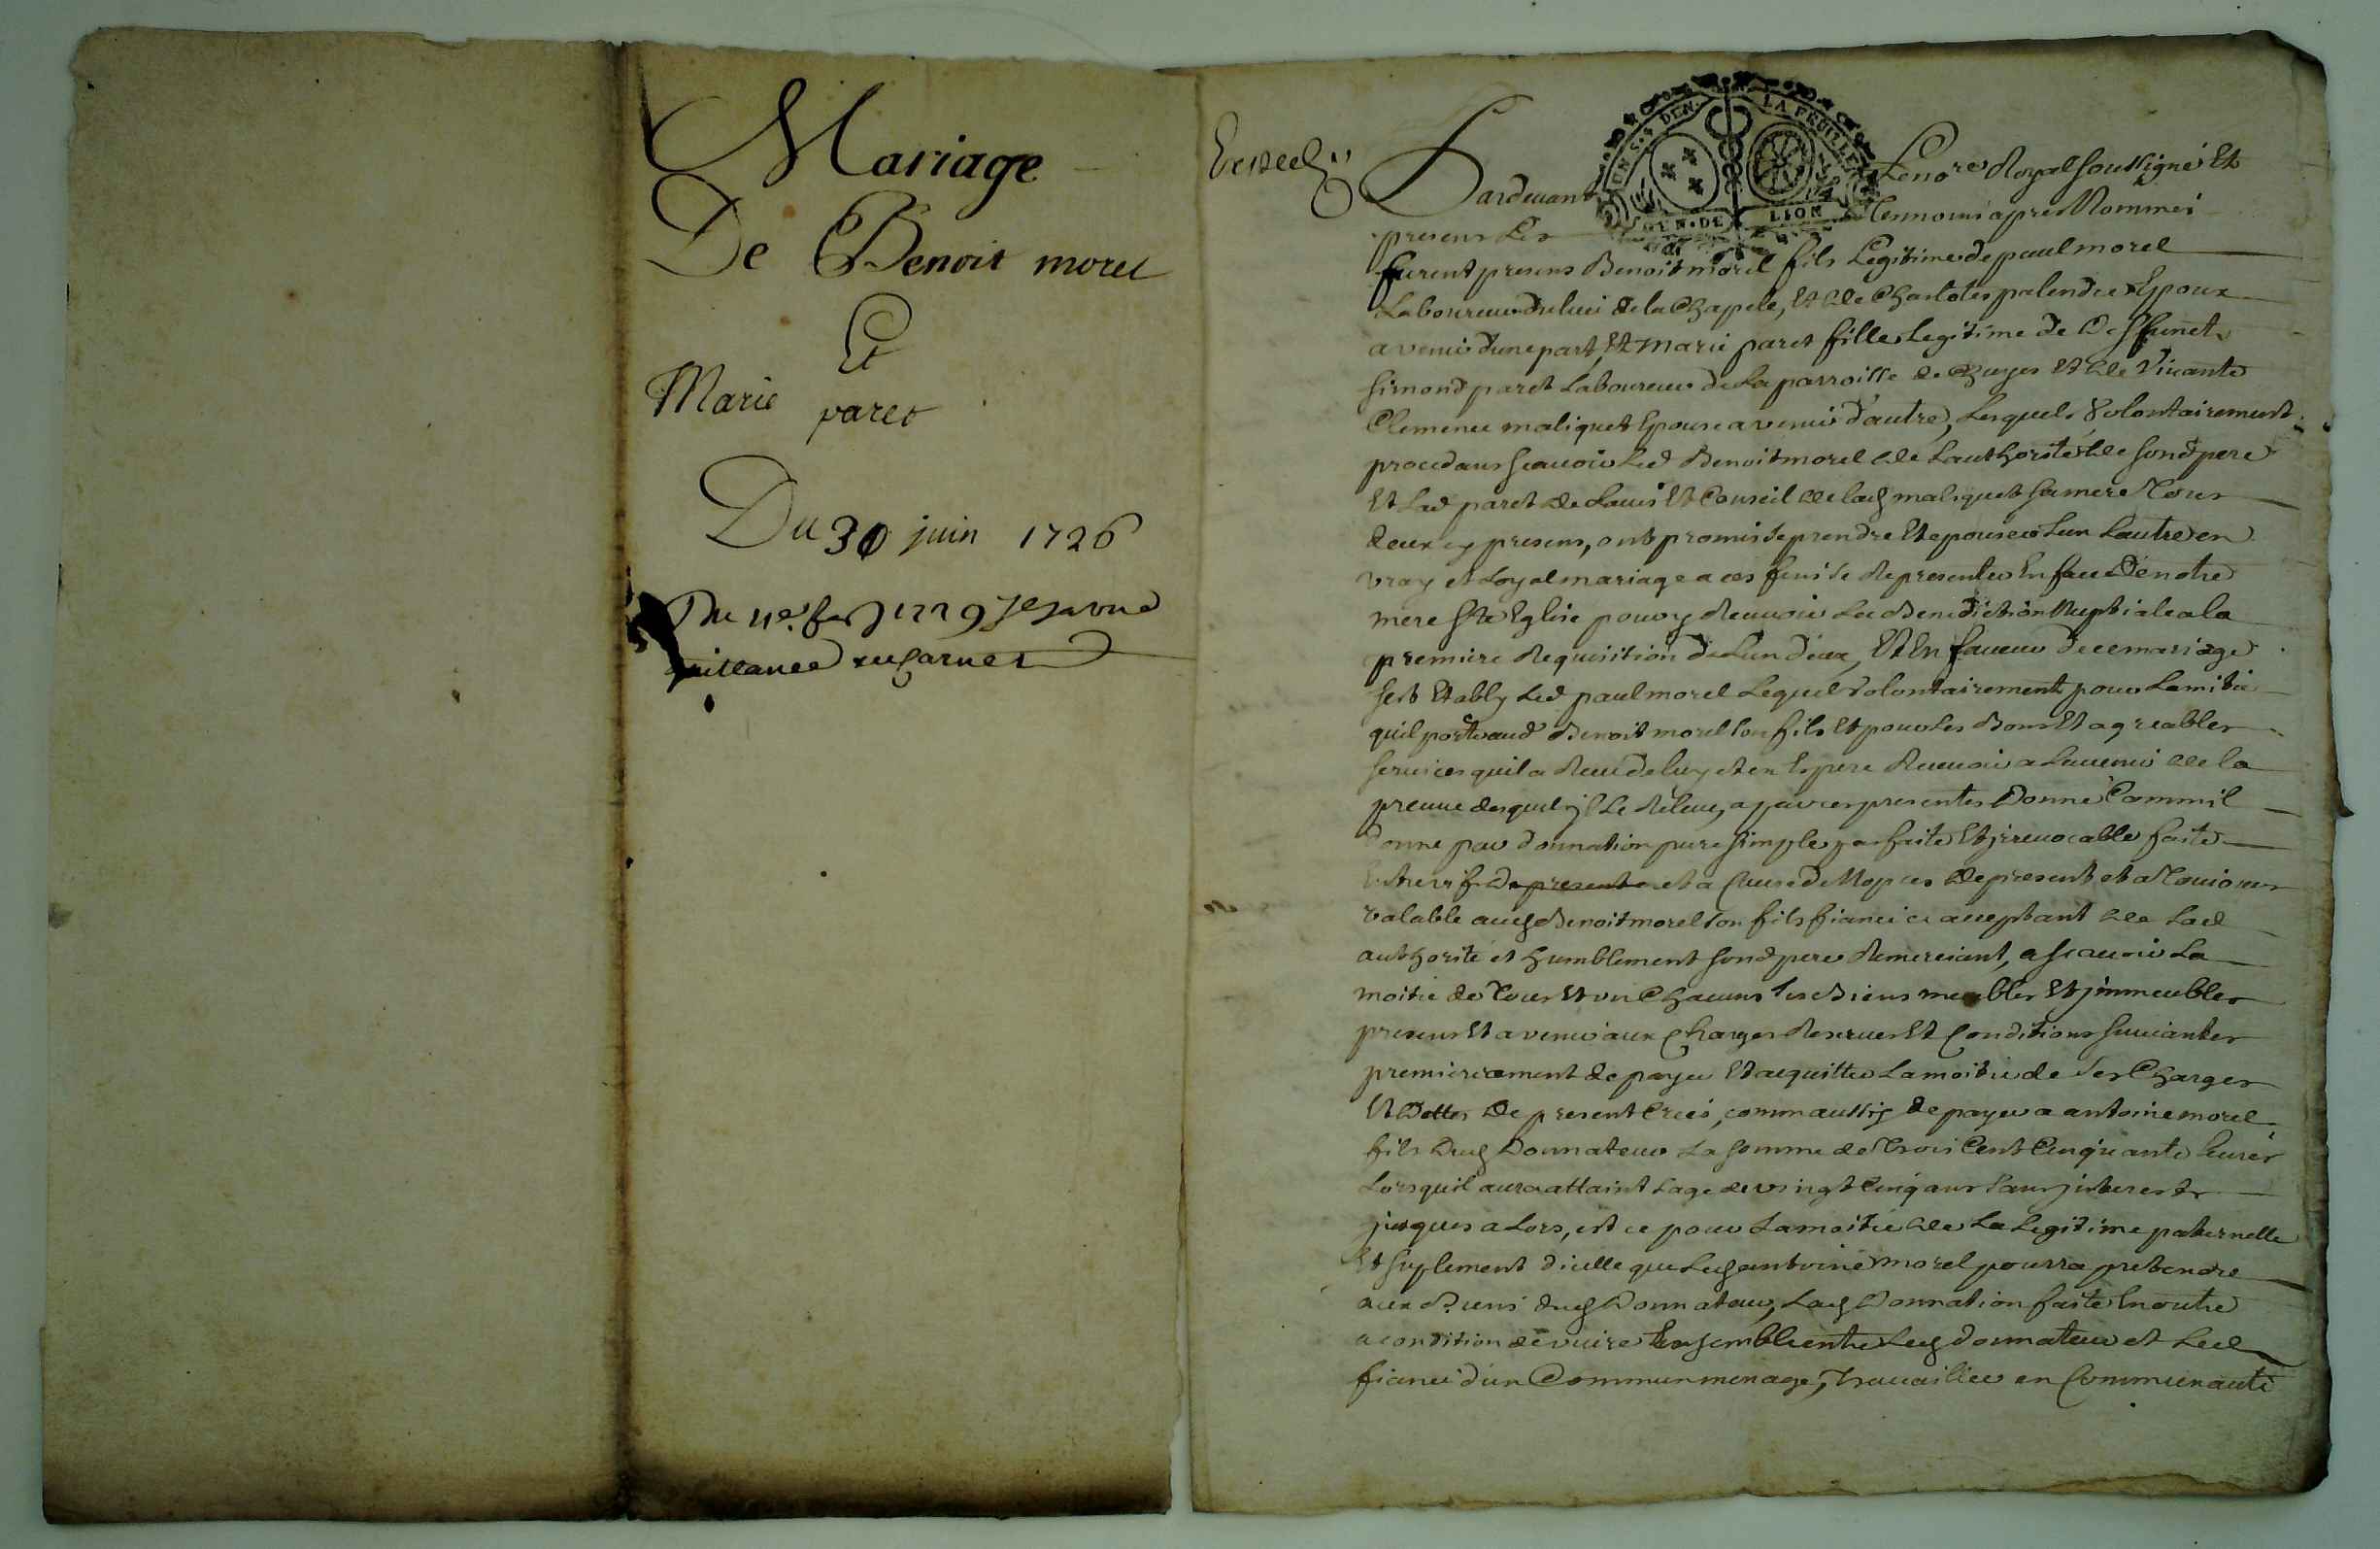 Mariage
De Benoit morel
Et
Marie paret
Du 30 juin 1726
quittancé au carnet
UN S. 4 DEN. LA FEUILLE
GEN. DE LION
Pardevant Le no.re Royal soussigné Et
presens Les temoins apres Nommés
furent presens Benoit morel fils Legitime de paul morel
Laboureur du lieu de la Chapele, Et de Charlote palendre Epoux
a venir d'une part, Et Marie paret fille Legitime de Deffunct
simond paret Laboureur de La parroisse de Chuyes Et de Vivante
Clemence maliquet Epouse a venir d'autre, Lesquels Volontairement
procedans scavoir Led Benoit morel de Lauthorité de sond pere
Et Lad paret de Lavis Et Conseil de lad maliquet sa mere Tous
deux cy presens, ont promis se prendre Et epouser Lun Lautre en
vray et Loyal mariage a ces fins se Representer En face De notre
mere Ste Eglise pour y Recevoir La Benediction Nuptiale a la
premiere Requisition de Lun d'eux, Et En faveur de ce mariage
sest Etably Led paul morel Lequel volontairement pour Lamitié
quil porte aud Benoit morel son fils Et pour Les Bons Et agreables
services quil a Receu de luy et en Espere Recevoir a Lavenir de la
preuve desquels jl Le Releve, a par ces presentes Donné Comm'il
donne par donnation pure simple parfaite Et jrrevocable faite
Entre vifs De presente et a Cause de Nopces De present et a Toujours
valable aud Benoit morel son fils fiancé cy acceptant de Lad
authorité et humblement sond pere Remerciant, a scavoir La
moitié de Tous Et un Chacuns ses Biens meubles Et jmmeubles
presens Et avenir aux Charges Reserves Et Conditions suivantes
premierement de payer Et acquitter La moitié de ses Charges
Et Dettes De present Créés, comm aussy de payer a antoine morel
fils dud Donnateur La somme de Trois Cent Cinquante Livres
Lorsquil aura attaint Lage de vingt Cinq ans sans jnterests
jusques a Lors, et ce pour La moitié de La Legitime paternelle
Et suplement d'icelle que Led antoine morel pourra pretendre
aux Biens dud Donnateur, Lad Donnation faite En outre
a condition de vivre Ensemble entre Led donnateur et Led
fiancé d'un Commun menage, Travailler en Communauté